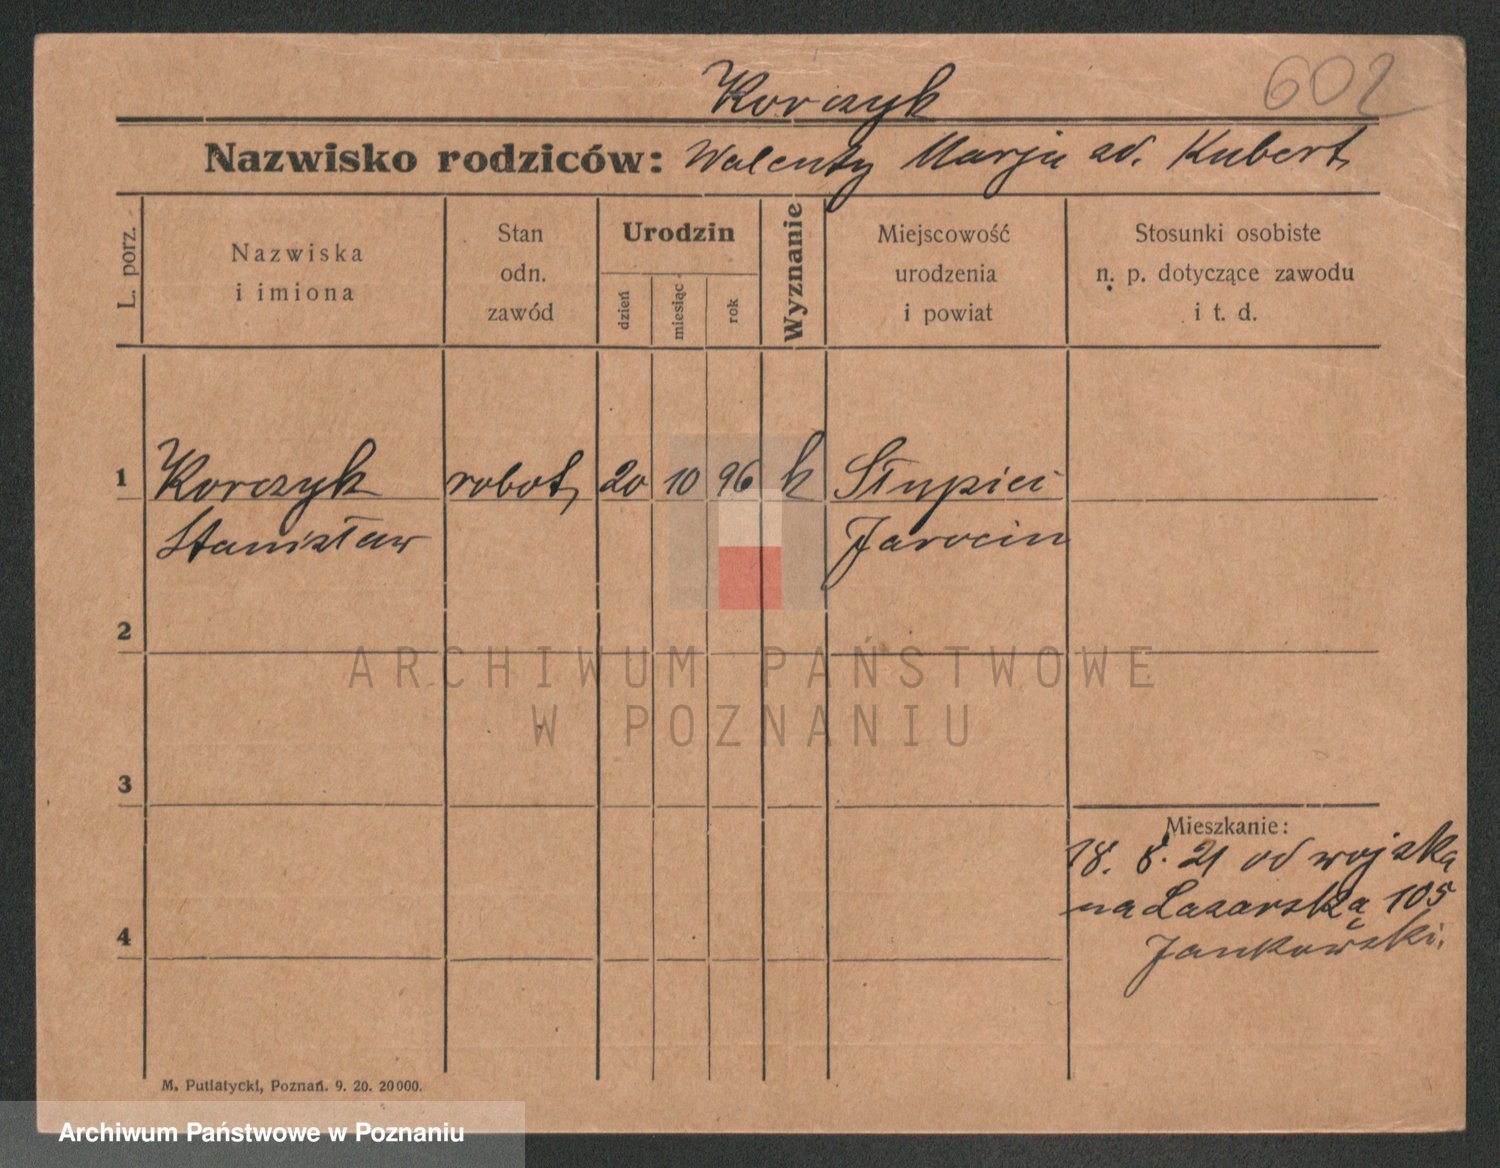 602
Korczyk
Nazwisko rodziców: Walenty Marja zd. Kubert
L. porz.
Nazwiska
i imiona
Stan
odn.
zawód
Urodzin
dzień
miesiąc
rok
Wyznanie
Miejscowość
urodzenia
i powiat
Stosunki osobiste
n. p. dotyczące zawodu
i t. d.
1 Korczyk robot. 20 10 96 k
Stanisław Jarocin
2
3
4
Mieszkanie:
18. 8. 21 od wojska
na Łazarską 105
Jankowski.
ARCHIWUM PAŃSTWOWE
W POZNANIU
M. Putiatycki, Poznań. 9. 20. 20000.
Archiwum Państwowe w Poznaniu